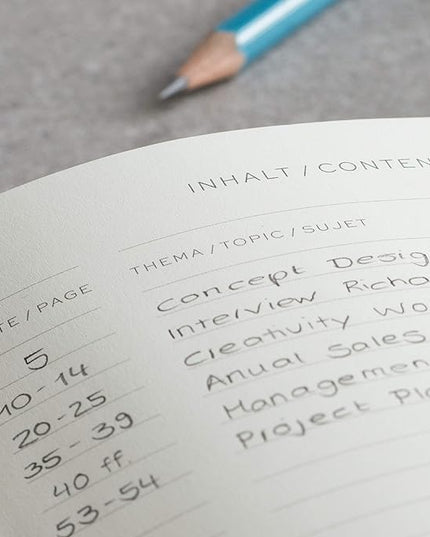 INHALT / CONTEN
TE / PAGE THEMA / TOPIC / SUJET
5 Concept Desig
10-14 Interview Richa
20-25 Creativity Wo
35-39 Anual Sales
40 ff. Managemen
53-54 Project Pla